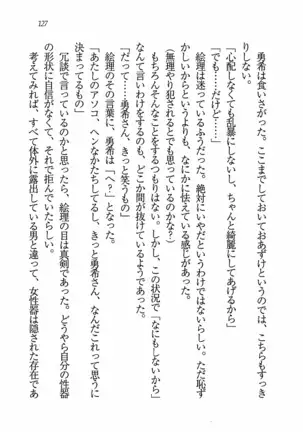 127
　勇希は食いさがった。ここまでしておいておあずけというのは、こちらもすっき
りしない。
「心配しなくても乱暴にしないし、ちゃんと綺麗にしてあげるから」
「でも……だけど……」
　絵理は迷っているふうだった。絶対にいやだというわけではないらしい。ただ恥ず
かしいからというよりも、なにかに怯えている感じがあった。
（無理やり犯されるとでも思っているのかな？）
　もちろんそんなことをするつもりはない。しかし、この状況で「なにもしないから」
なんて言いわけをするのも、どこか間が抜けているようであった。
「だって……勇希さん、きっと笑うもの」
　絵理のその言葉に、勇希は「へ？」となった。
「あたしのアソコ、ヘンなかたちしてるし、きっと勇希さん、なんだこれって思うに
決まってるもの」
　冗談で言っているのかと思ったら、絵理の目は真剣であった。どうやら自分の性器
の形状に自信がなくて、それで拒んでいたらしい。
　考えてみれば、すべて体外に露出している男と違って、女性器は隠された存在であ